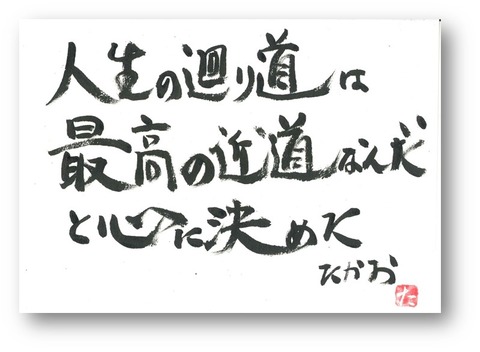 人生の廻り道は
最高の近道なんだ
と心に決めた
たかお
た